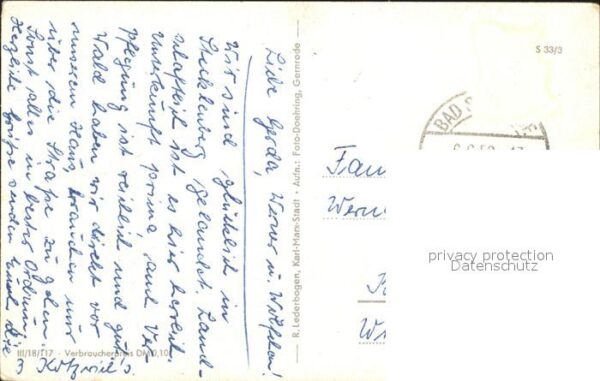 Liebe Gerda, Werner u. Wölfchen!
Wir sind glücklich in
Stecklenburg gelandet. Land-
schaftlich ist es hier herrlich.
Unterkunft prima und Ver-
pflegung ist reichlich und gut.
Wald haben wir direkt vor
unserem Haus, brauchen nur
über die Straße zu gehen.
Sonst alles in bester Ordnung.
Herzliche Grüße senden Euch die
3
R. Lederbogen, Karl-Marx-Stadt • Aufn.: Foto-Doehring, Gernrode
III/18/117 Verbraucherpreis DM 0,10
S 33/3
BAD
Fam
Wern
privacy protection
Datenschutz